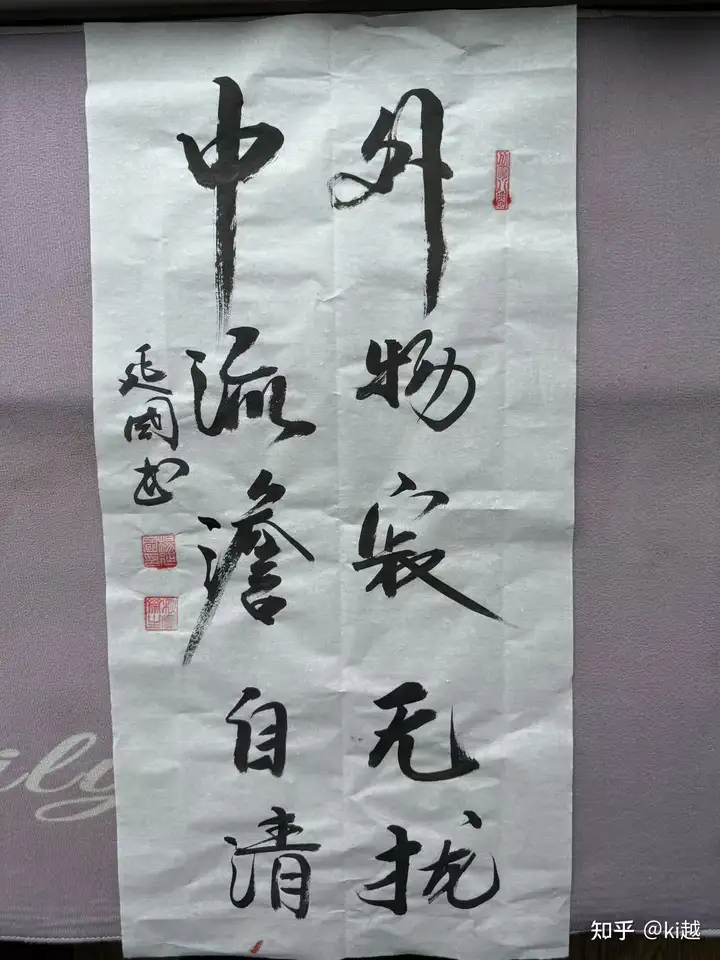 外物寂无扰
中流澹自清
延國书
ily
知乎 @ki越